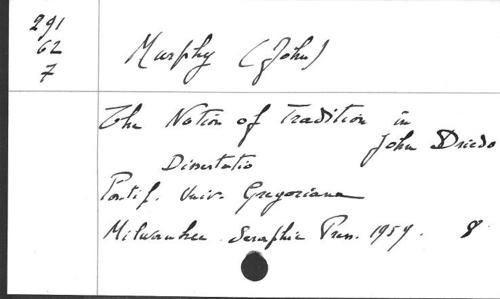 291
62
7
Murphy (John)
The Notion of Tradition in
John Driedo
Dissertatio
Pontif. Univ. Gregoriana
Milwaukee. Seraphic Press. 1959. 8